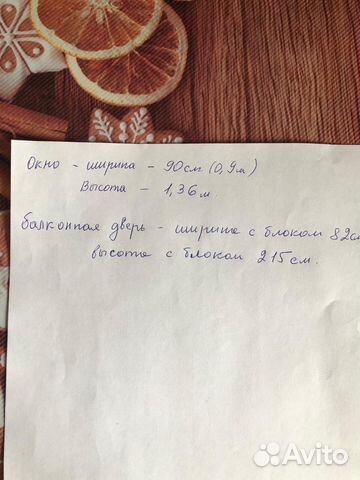 Окно - ширина - 90см (0,9м)
Высота - 1,36 м.
Балконная дверь - ширина с блоком 82см
высота с блоком 215см.
Avito